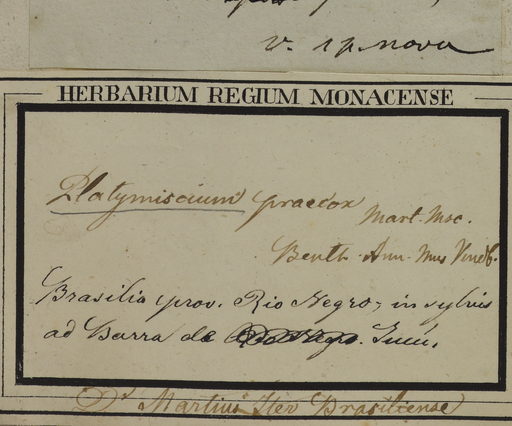 v. sp. nova
HERBARIUM REGIUM MONACENSE
Platymiscium praecox Mart. Msc.
Benth. Ann. Mus. Vindb.
Brasilia prov. Rio Negro, in sylvis
ad Barra de
Dr Martius Iter Brasiliense